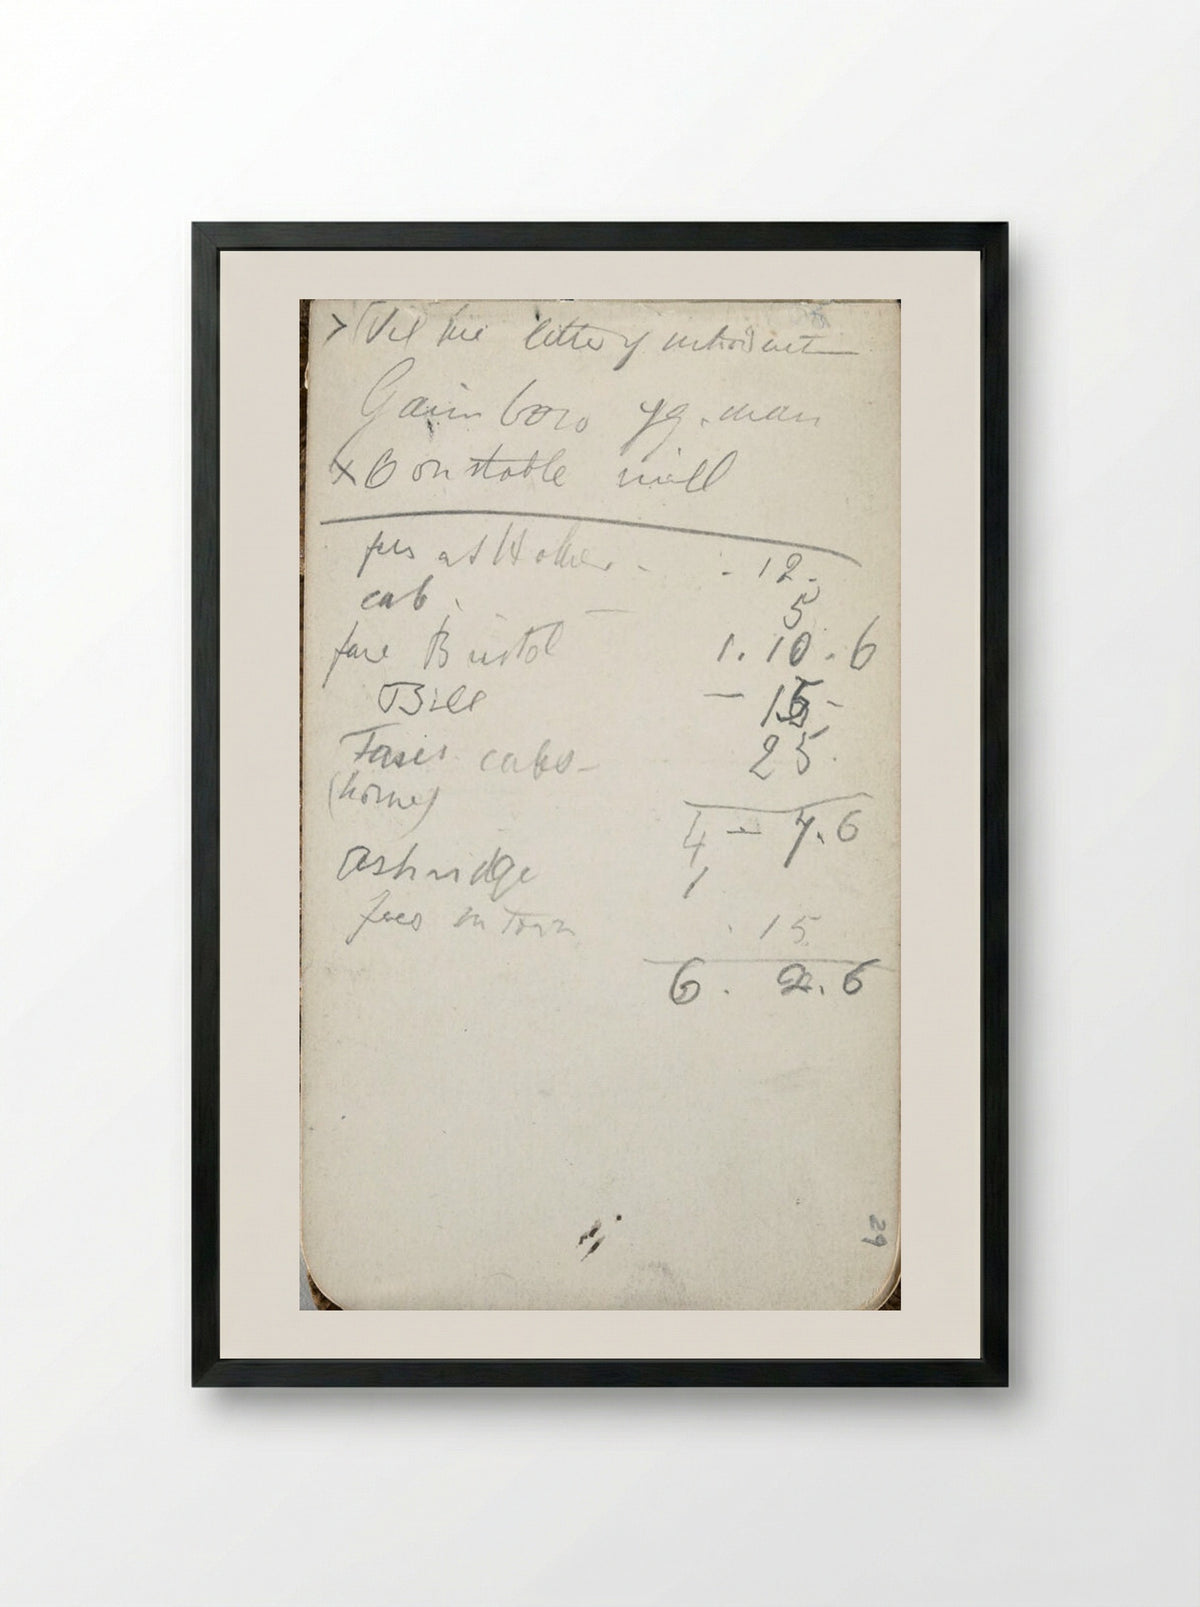 letter of introduct
Gainsboro yg. man
x Constable mill
fees at Holker - - . 12 .
cab . - 5
fare Bristol 1. 10 . 6
Bill - 15 -
Fares cabs - 25 .
(home)
4 - 7. 6
Ashridge 1
fees in Town . 15
6 . 2 . 6
29